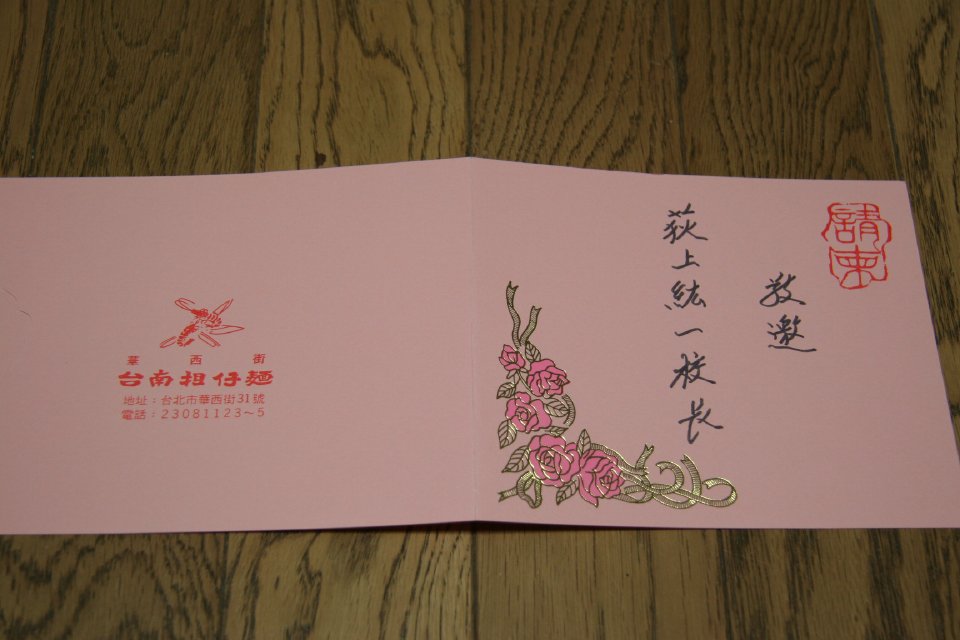 請柬
敬邀
荻上紘一校長
華西街
台南担仔麵
地址：台北市華西街31號
電話：23081123～5